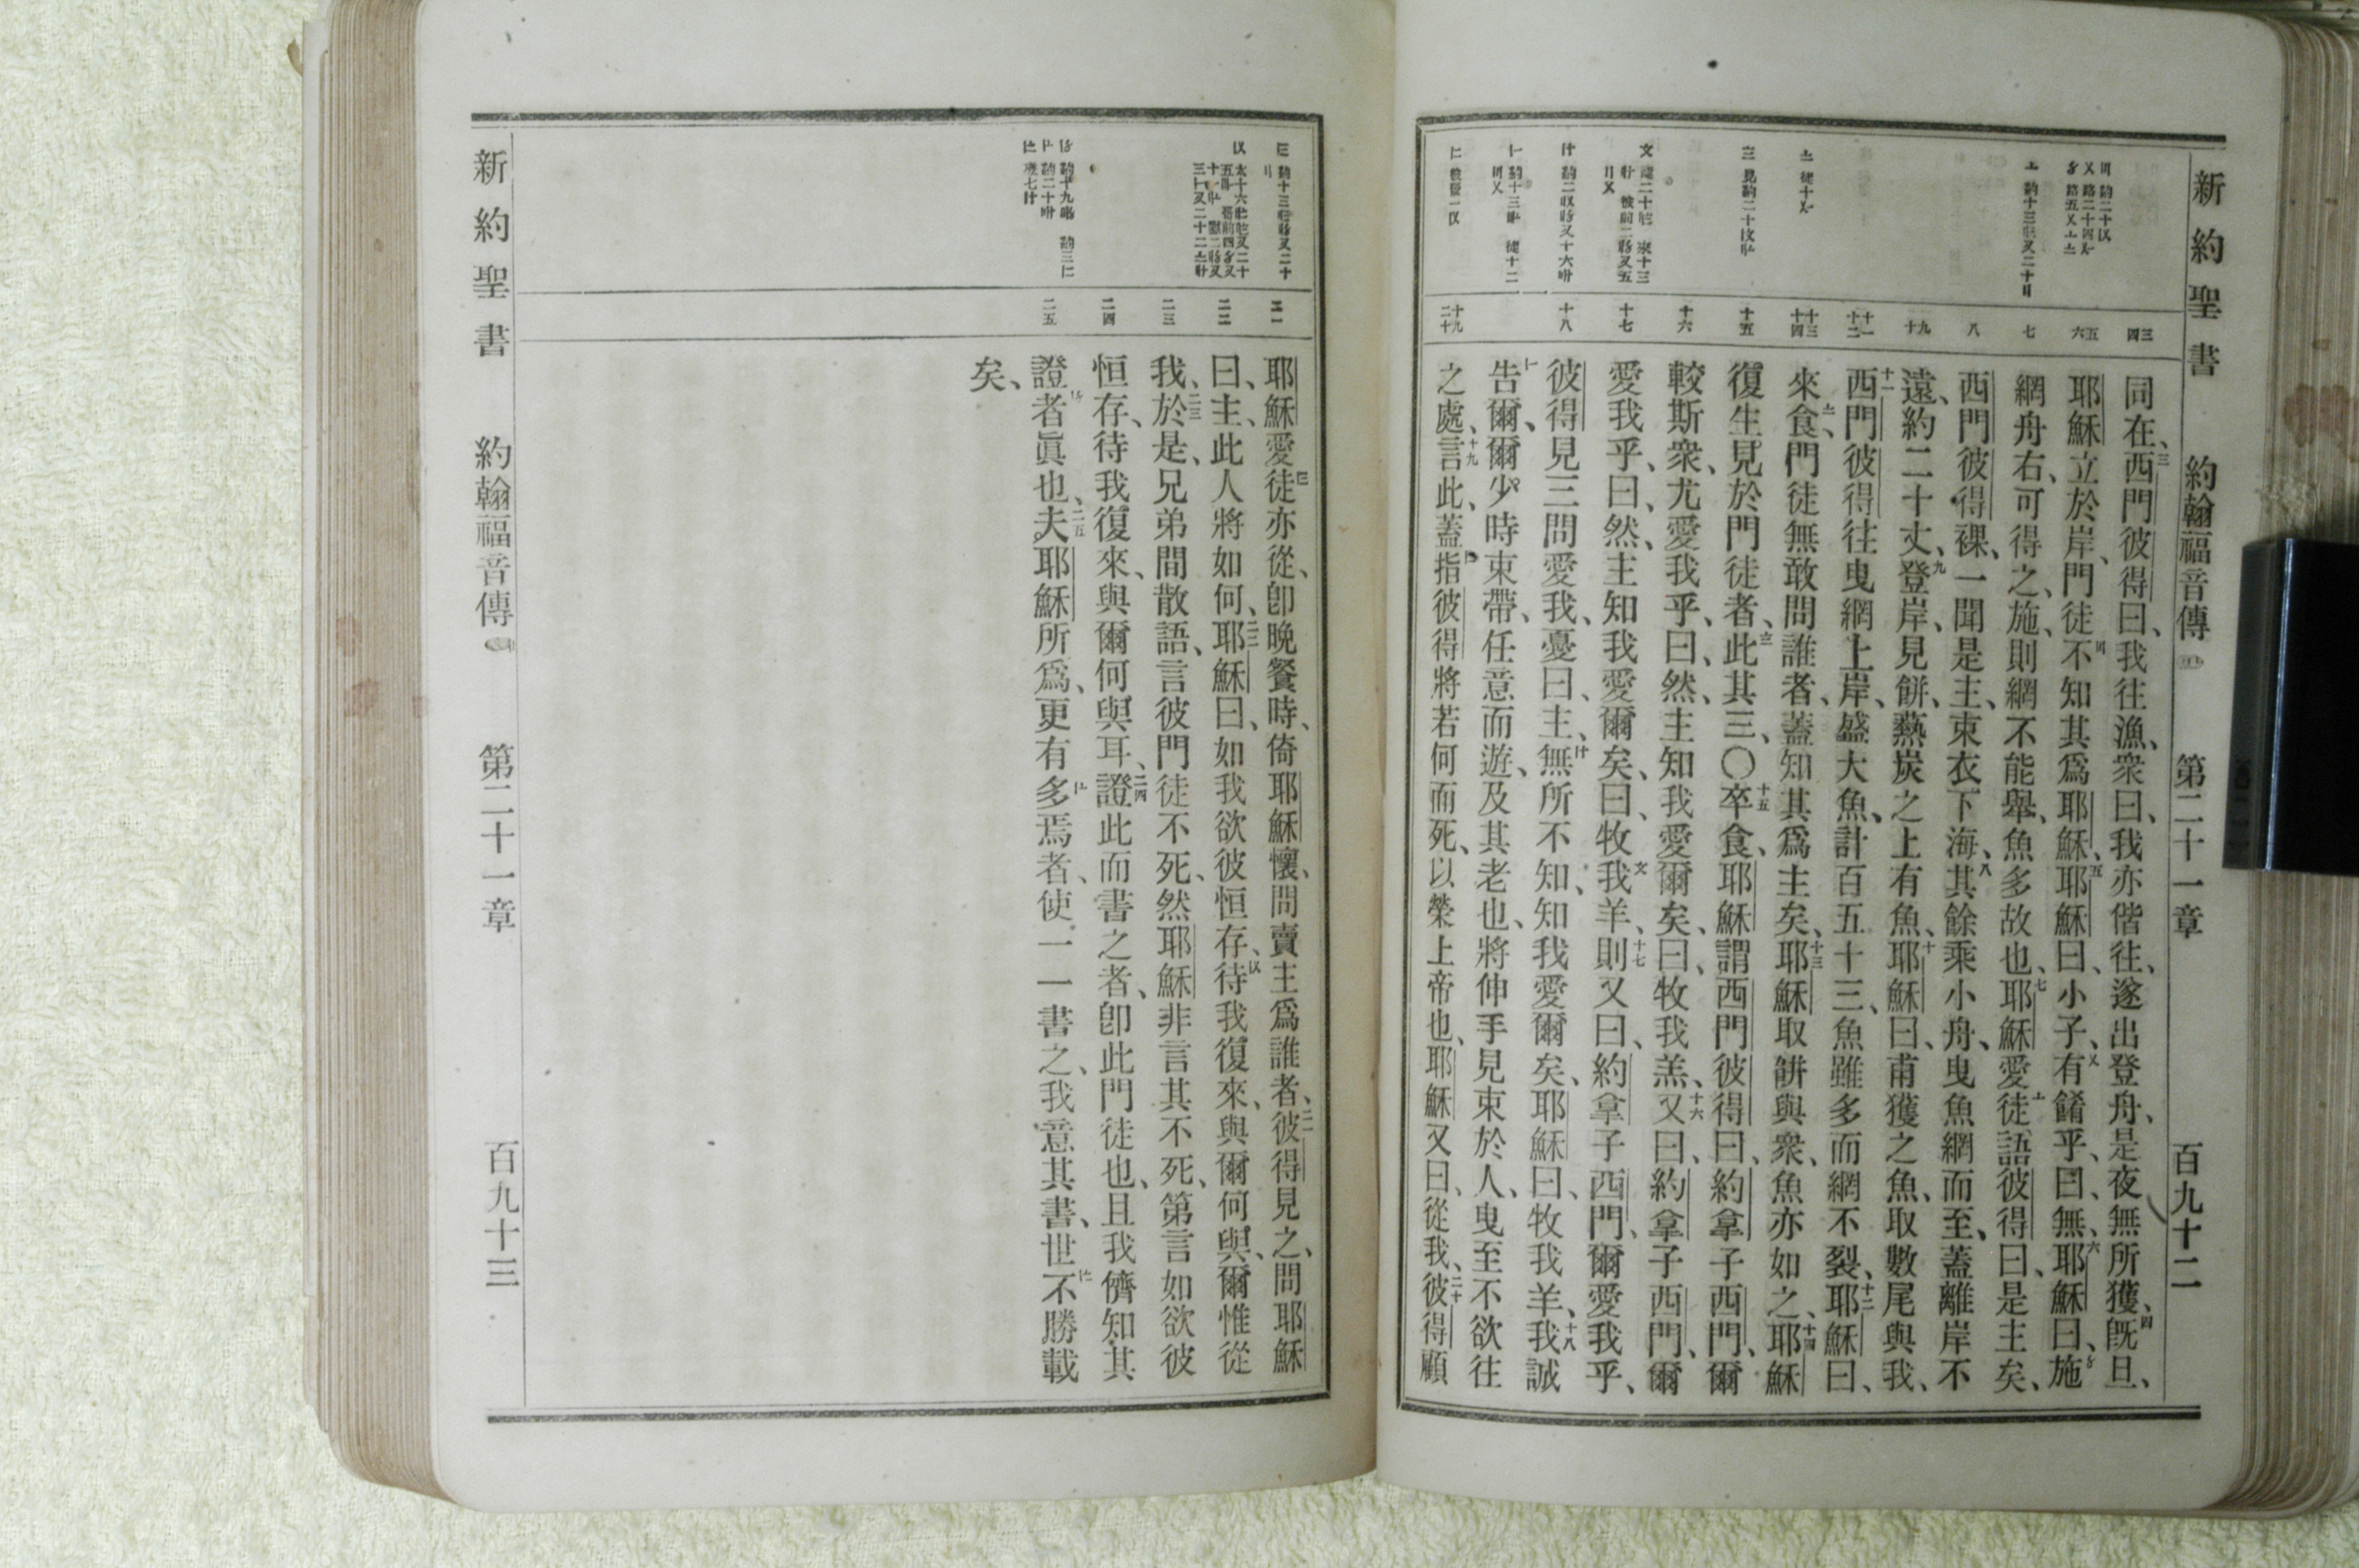 新約聖書 約翰福音傳 第二十一章 百九十二
三四
五六
七
八
九十
十一十二
十三十四
十五
十六
十七
十八
十九二十
同在、三西門彼得曰、我往漁、衆曰、我亦偕往、遂出登舟、是夜無所獲、四旣旦、
耶穌立於岸、門徒不知其爲耶穌、五耶穌曰、小子、有餚乎、曰、無、六耶穌曰、施
網舟右、可得之、施、則網不能舉、魚多故也、七耶穌愛徒語彼得曰、是主矣、
西門彼得裸、一聞是主、束衣下海、八其餘乘小舟、曳魚網而至、蓋離岸不
遠、約二十丈、九登岸、見餅、爇炭之上有魚、十耶穌曰、甫獲之魚、取數尾與我、
十一西門彼得往曳網上岸、盛大魚、計百五十三、魚雖多而網不裂、十二耶穌曰、
來食、門徒無敢問誰者、蓋知其爲主矣、十三耶穌取餅與衆、魚亦如之、十四耶穌
復生見於門徒者、此其三、〇十五卒食、耶穌謂西門彼得曰、約拿子西門、爾
較斯衆、尤愛我乎、曰、然、主知我愛爾矣、曰、牧我羔、十六又曰、約拿子西門、爾
愛我乎、曰、然、主知我愛爾矣、曰、牧我羊、十七則又曰、約拿子西門、爾愛我乎、
彼得見三問愛我、憂曰、主、無所不知、知我愛爾矣、耶穌曰、牧我羊、十八我誠
告爾、爾少時束帶、任意而遊、及其老也、將伸手見束於人、曳至不欲往
之處、十九言此、蓋指彼得將若何而死、以榮上帝也、耶穌又曰、從我、二十彼得顧
新約聖書 約翰福音傳 第二十一章 百九十三
二一
二二
二三
二四
二五
耶穌愛徒亦從、卽晚餐時、倚耶穌懷、問賣主爲誰者、二一彼得見之、問耶穌
曰、主、此人將如何、二二耶穌曰、如我欲彼恒存、待我復來、與爾何與、爾惟從
我、二三於是、兄弟間散語、言彼門徒不死、然耶穌非言其不死、第言如欲彼
恒存、待我復來、與爾何與耳、二四證此而書之者、卽此門徒也、且我儕知其
證者眞也、二五夫耶穌所爲、更有多焉者、使一一書之、我意其書、世不勝載
矣、